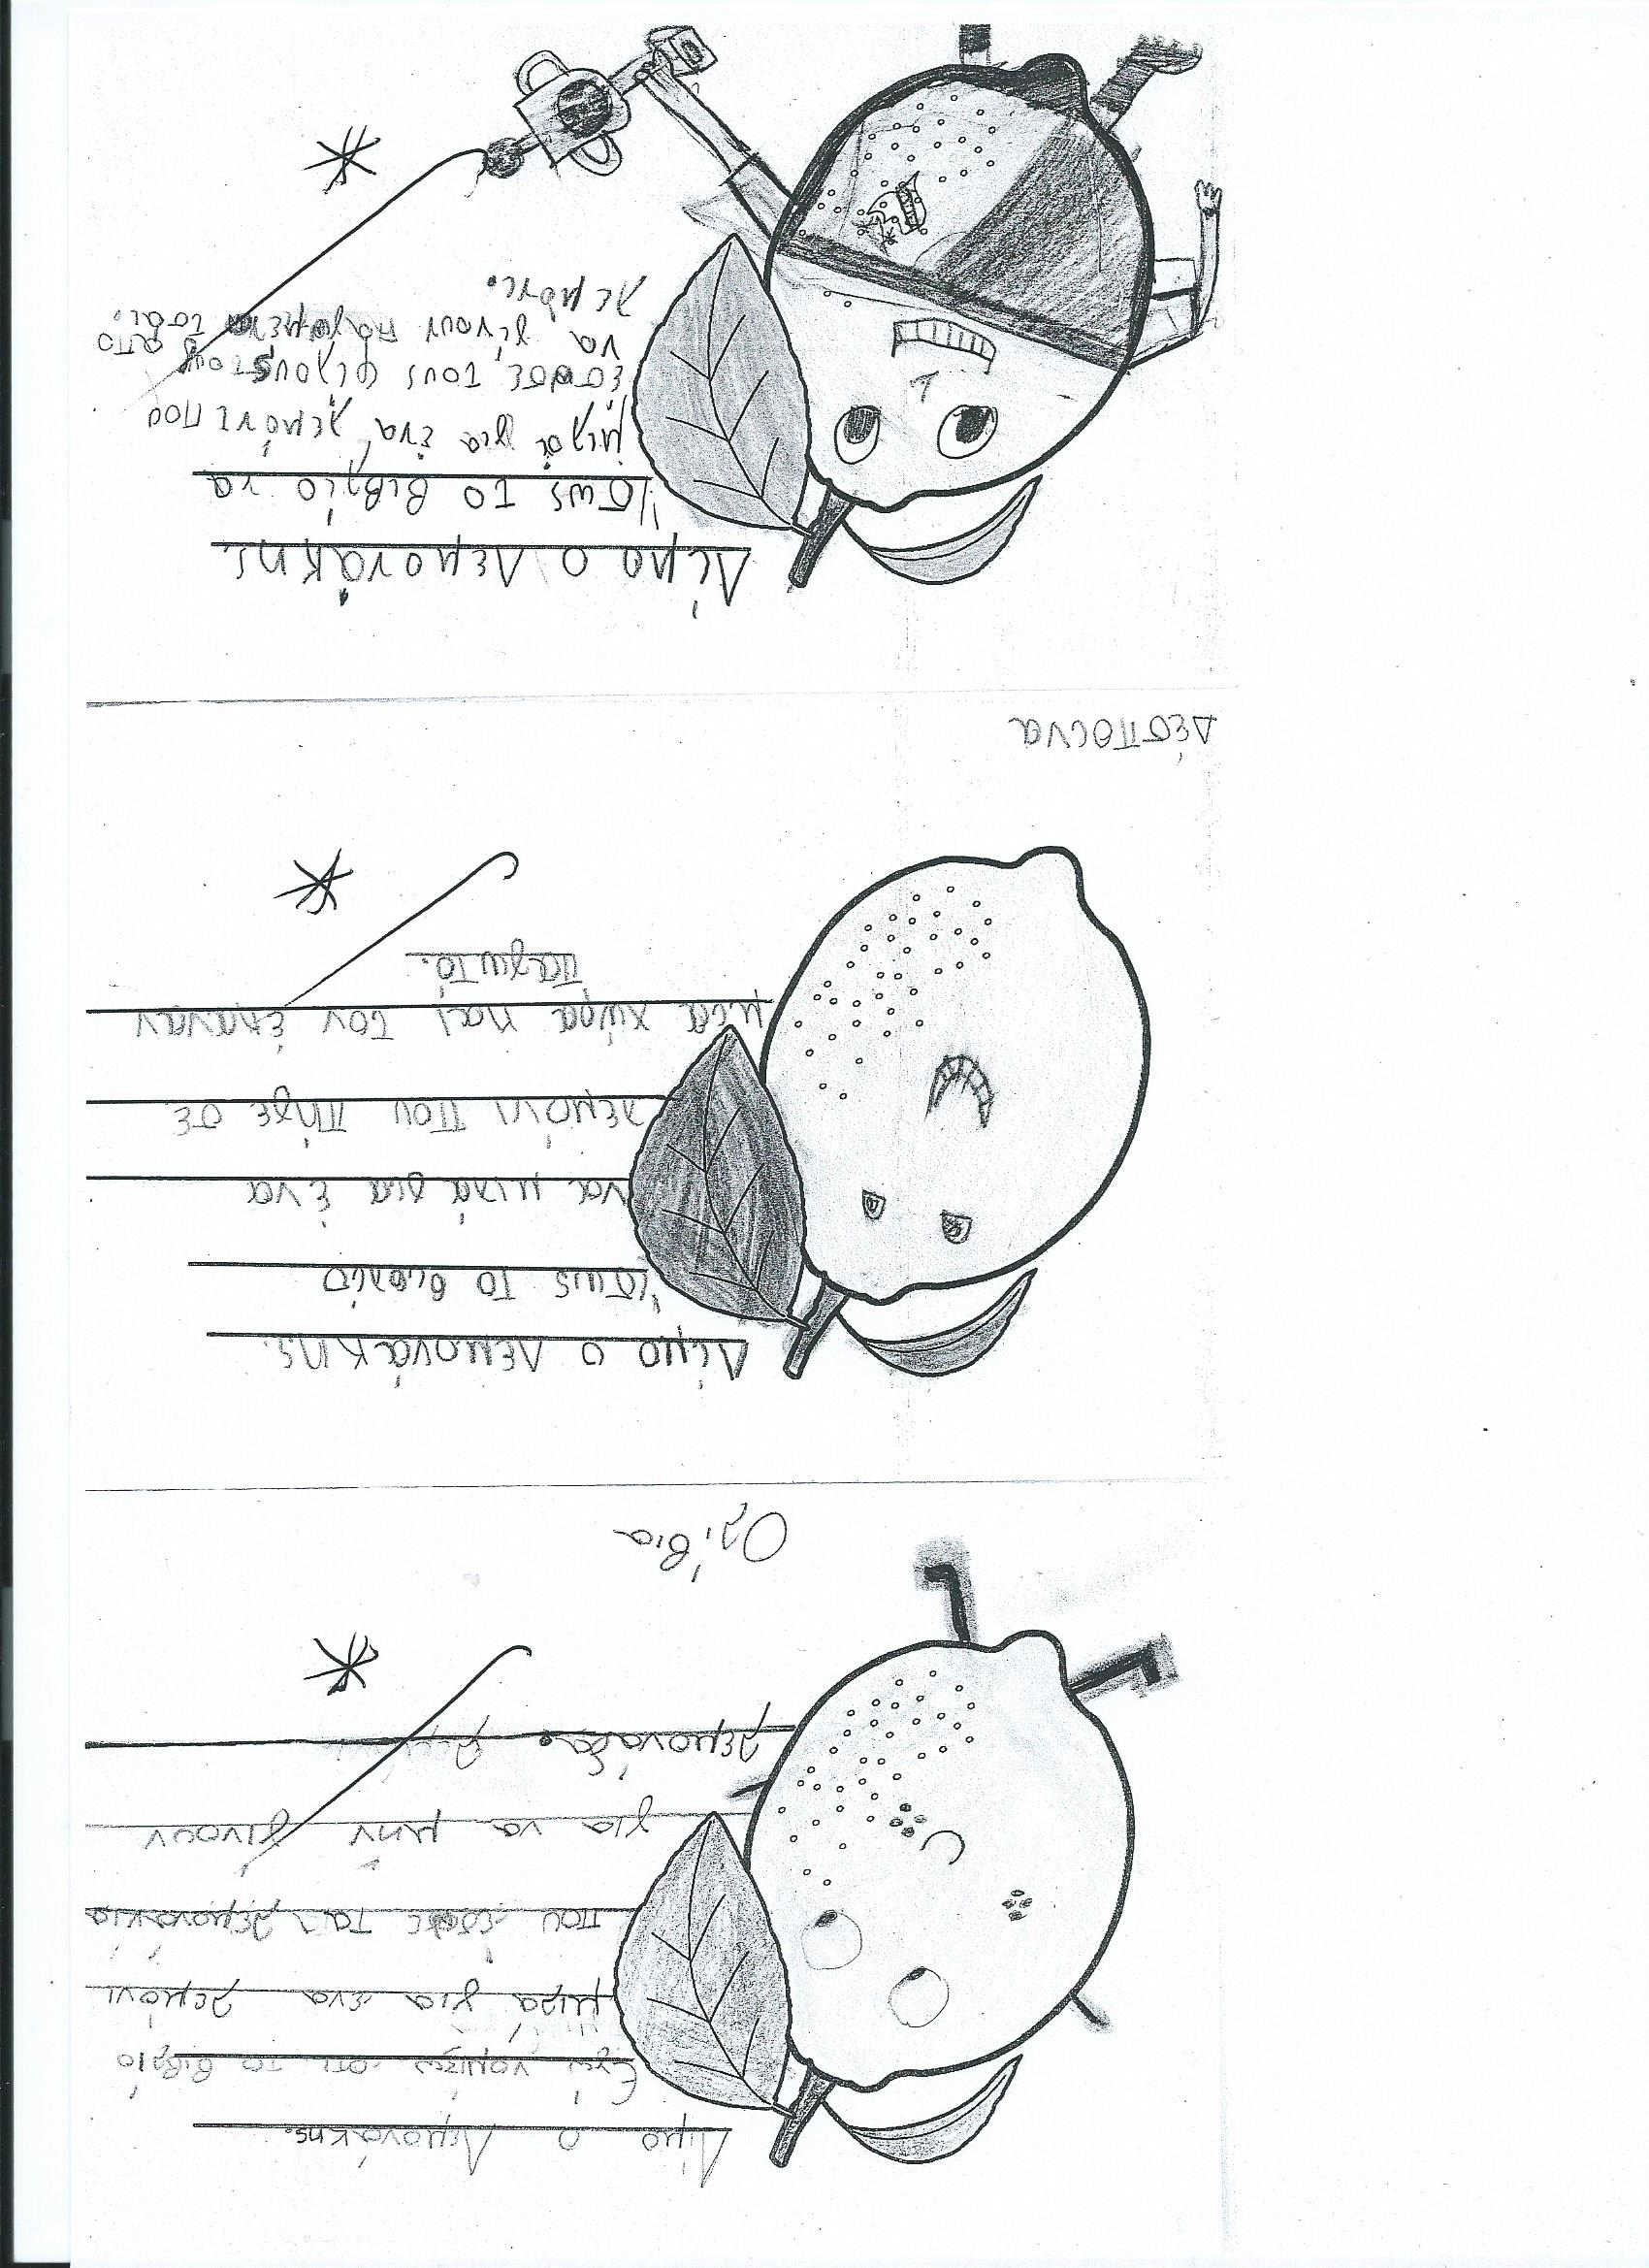 Λίμο ο Λεμονάκης.
Εγώ νομίζω οτι το βιβλίο
μιλα για ένα λεμόνι
που έσωσε τα λεμονάκια
για να μην γίνουν
λεμονάδα.
Ολίβια
Λίμο ο Λεμονάκης.
Ίσως το βιβλίο
να μιλά για ένα
λεμόνι που πήγε σε
μια χώρα και τον έκαναν
παγωτό.
Δέσποινα
Λίμο ο Λεμονάκης
Ίσως το βιβλίο να
μιλάι για ένα λεμόνι που
έσωσε τους φίλους του
να γίνουν παγωμένο τσάι.
λεμόνι.